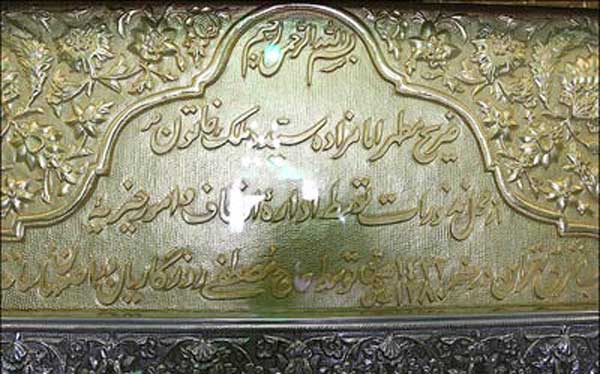 بسم الله الرحمن الرحیم
ضریح مطهر امامزاده سیده ملک خاتون
از محل نذورات توسط اداره اوقاف و امور خیریه
شرق تهران در سنه توسط حاج مصطفی روزگاریان